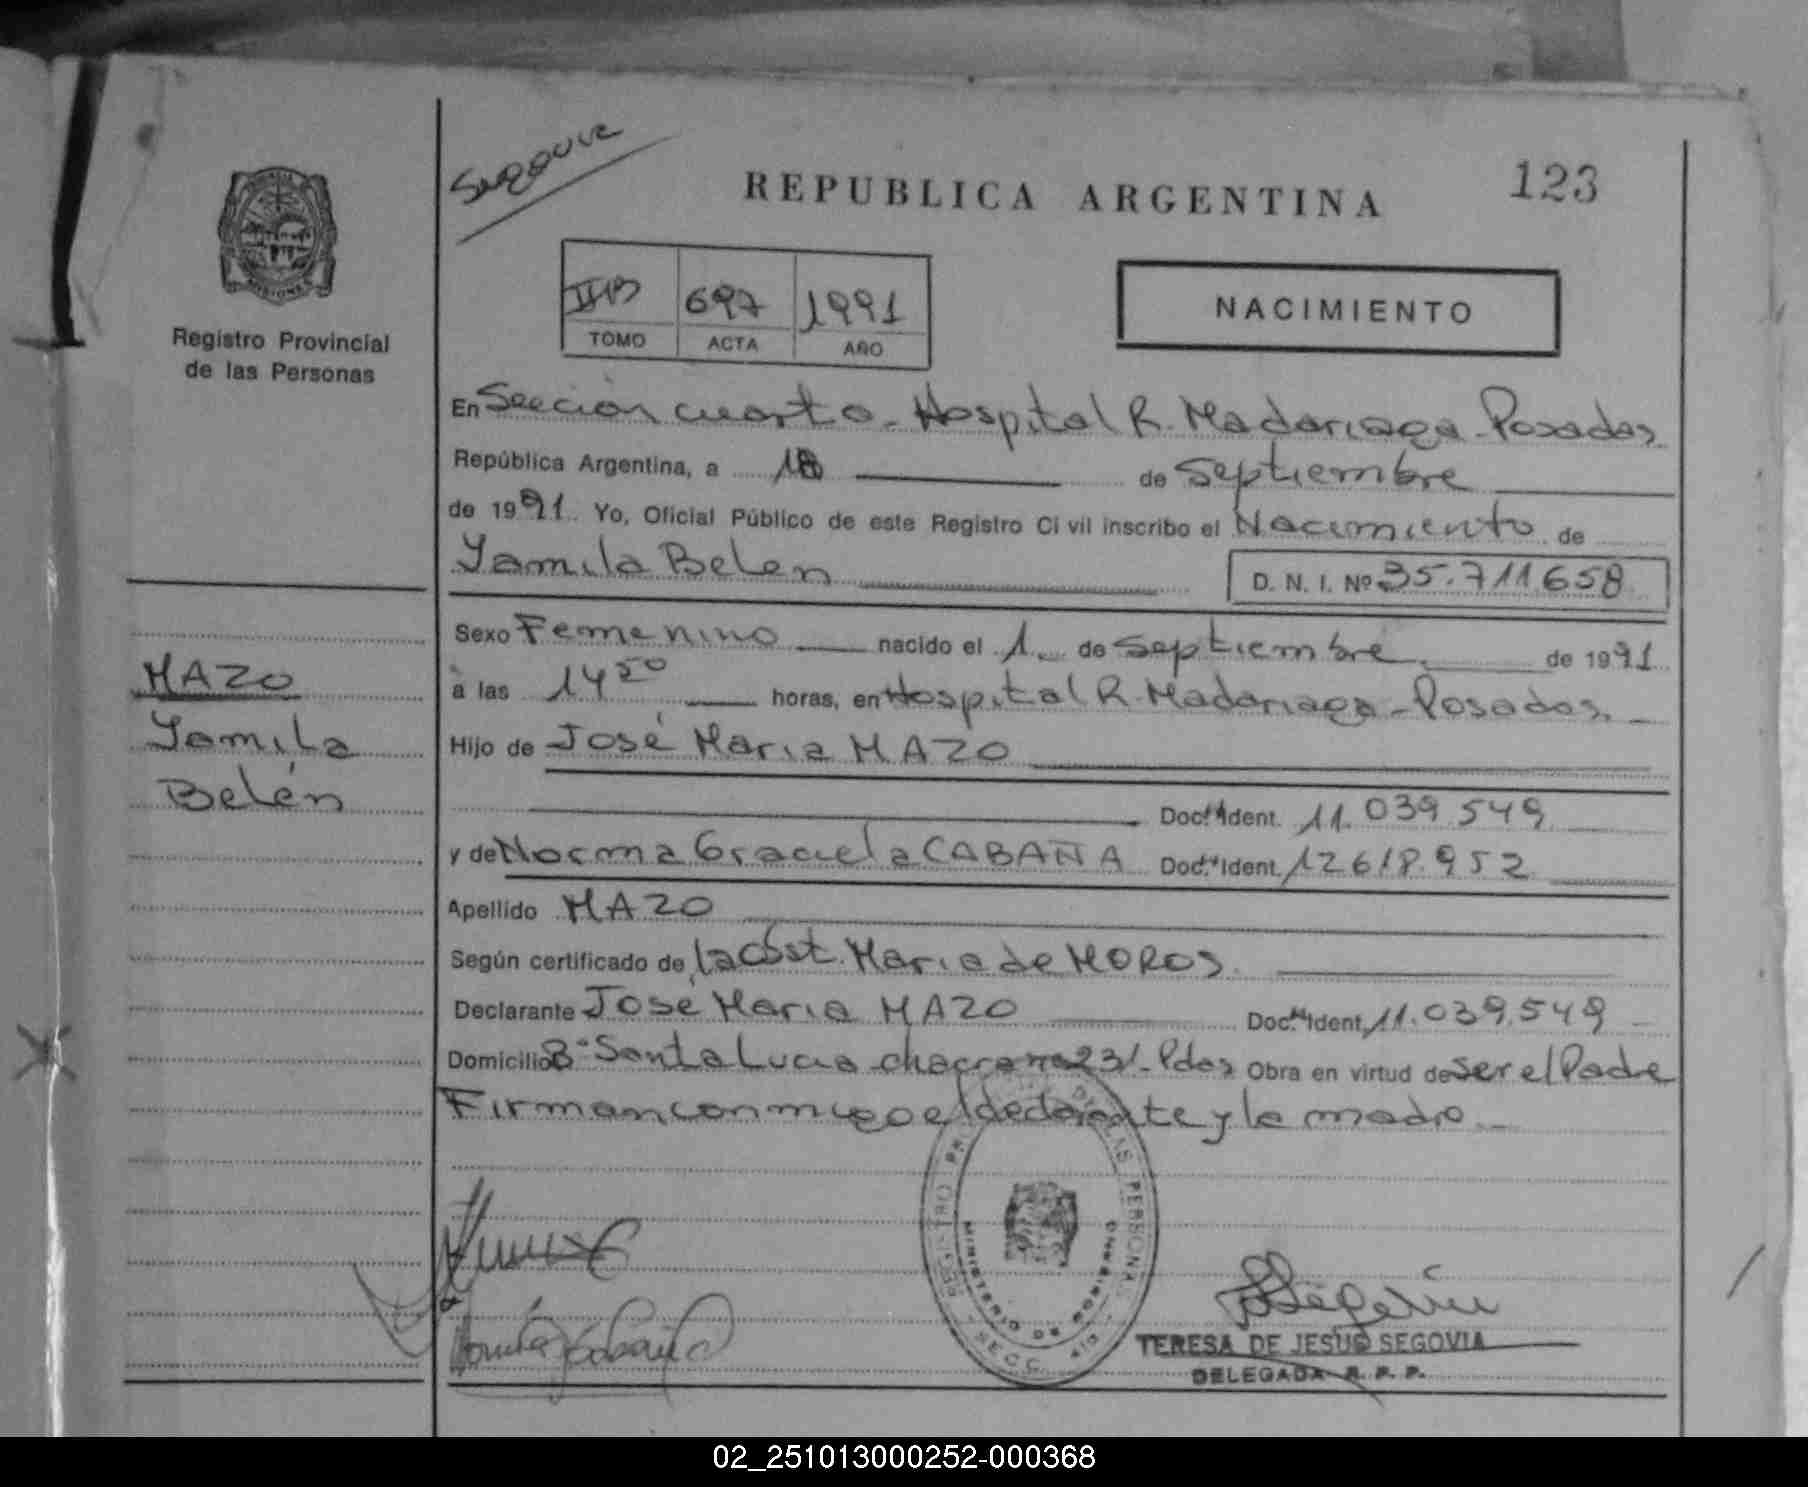 Segovia
REPUBLICA ARGENTINA
123
MISIONES
Registro Provincial
de las Personas
IIB 697 1991
TOMO ACTA AÑO
NACIMIENTO
En Sección cuarta - Hospital R. Madariaga - Posadas
República Argentina, a 18 de Septiembre
de 1991. Yo, Oficial Público de este Registro Civil inscribo el Nacimiento de
Yamila Belen D. N. I. Nº 35.711.658
Sexo Femenino nacido el 1 de Septiembre de 1991
a las 14 50 horas, en Hospital R. Madariaga - Posadas.
Hijo de José Maria MAZO
Doc. Ident. 11.039.549
y de Norma Graciela CABAÑA Doc. Ident. 12618.952
Apellido MAZO
Según certificado de la Obst. Maria de MOROS.
Declarante José Maria MAZO Doc. Ident. 11.039.549
Domicilio Bº Santa Lucia chacra nº 23/- Pdas Obra en virtud de ser el Padre
Firman conmigo el declarante y la madre
MAZO
Yamila
Belén
TERESA DE JESUS SEGOVIA
DELEGADA R. P. P.
02_251013000252-000368